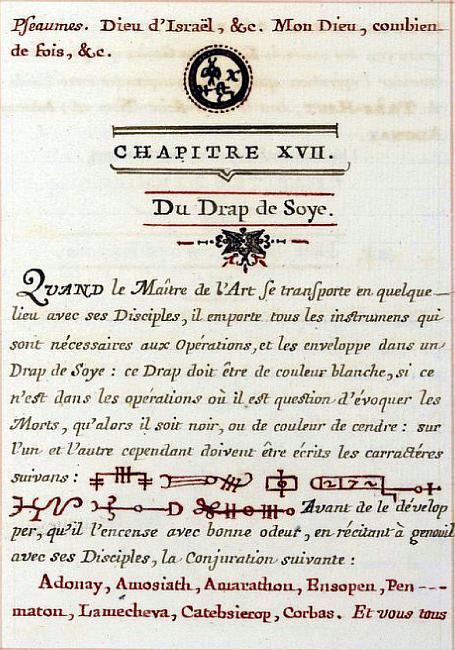 Pseaumes. Dieu d'Israël, &c. Mon Dieu, combien
de fois, &c.
CHAPITRE XVII.
Du Drap de Soye.
QUAND le Maître de l'Art se transporte en quelque
lieu avec ses Disciples, il emporte tous les instrumens qui
sont nécessaires aux Opérations, et les enveloppe dans un
Drap de Soye : ce Drap doit être de couleur blanche, si ce
n'est dans les opérations où il est question d'évoquer les
Morts, qu'alors il soit noir, ou de couleur de cendre : sur
l'un et l'autre cependant doivent être écrits les carractéres
suivans :
Avant de le dévelop
per, qu'il l'encense avec bonne odeur, en récitant à genouil
avec ses Disciples, la Conjuration suivante :
Adonay, Amosiath, Amarathon, Ensopen, Pen---
maton, Lamecheva, Catebsierop, Corbas. Et vous tous